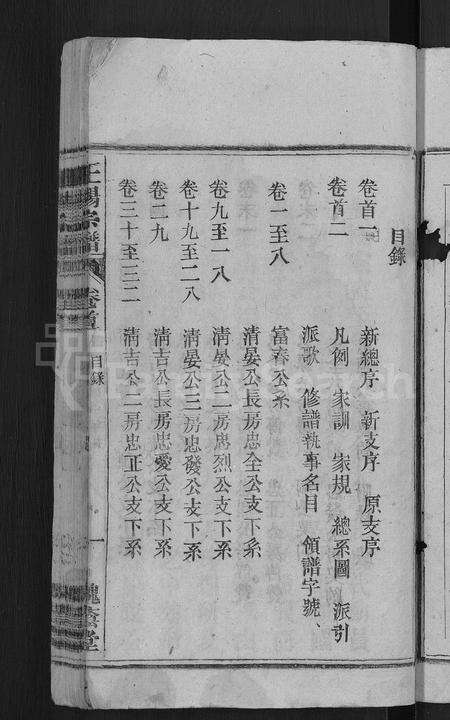 目錄
卷首一 新總序 新支序 原支序
卷首二 凡例 家訓 家規 總系圖 派引
派歌 修譜執事名目 領譜字號、
卷一至八 富春公系
清晏公長房忠全公支下系
卷九至一八 清晏公二房忠烈公支下系
卷十九至二八 清晏公三房忠發公支下系
卷二九 清吉公長房忠愛公支下系
卷三十至三二 清吉公二房忠正公支下系
宗譜 卷首 目錄 一 槐蔭堂